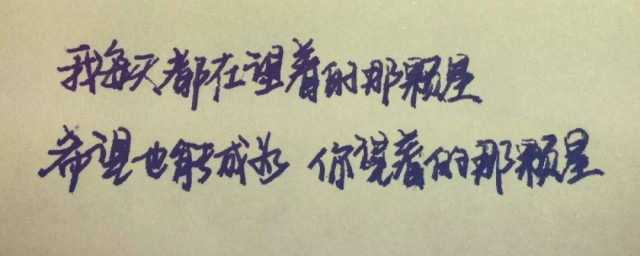 我每天都在望着的那颗星
希望也能成为 你望着的那颗星